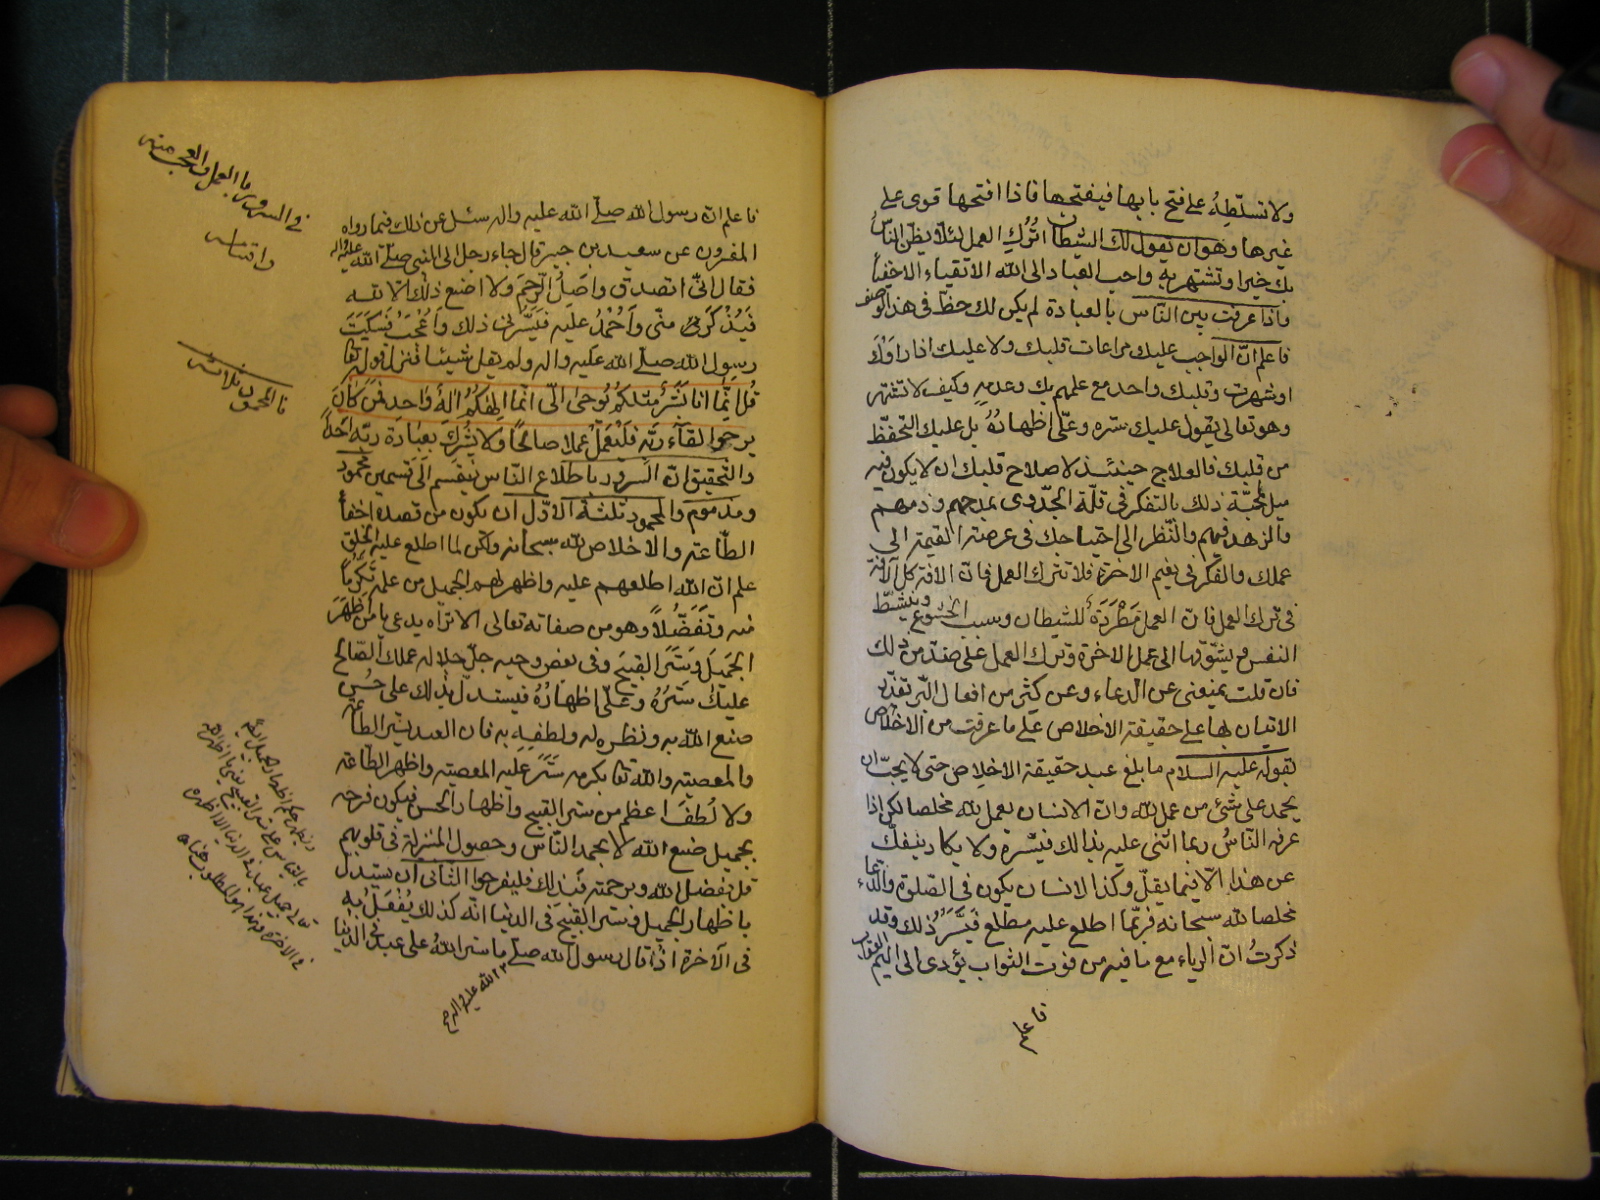 ولا تسلّطه على فتح بابها فيفتحها فاذا افتحها قوى على
غيرها وهو ان يقول لك الشيطان اُترُكِ العمل لئلّا يظن الناسُ
بك خيرا وتشتهر به واحب العباد الى الله الاتقياء الاخفيا
واذا عرفت بين النّاس بالعبادة لم يكن لك حظّا فى هذا الوصف
فاعلم انّ الواجب عليك مراعات قلبك ولا عليك اذا راوك
او شهرت وقلبك واحد مع علمهم بك وعدمه وكيف لا تشتهر
وهو تعالى يقول عليك ستره وعلىّ اظهارُهُ بل عليك التحفّظ
من قلبك فالعلاج حينئذ لاصلاح قلبك ان لا يكون فيه
ميل لمحبّة ذلك بالتفكر فى قلّة الجدوى بمدحهم وذمهم
والزهد فيهم والنّظر الى احتياجك فى عرصة القيمة الى
عملك والفكر فى نعيم الاخرة فلا تترك العمل فانّ الافة كل الافة
فى ترك العمل فانّ العمل مَطْرَدَةٌ للشيطان وسبب الخشوع وينشّط
النفس ويشوّقها الى عمل الاخرة وترك العمل على ضدّ من ذلك
فان قلت يمنعنى عن الدعاء وعن كثير من افعال البّر تعذّر
الاتيان بها على حقيقة الاخلاص على ما عرفت من الاخلاص
لقوله عليه السلام ما بلغ عبد حقيقة الاخلاص حتى لا يحبّ ان
يحمد على شئ من عمل لله وانّ الانسان يعمل لله مخلصا لكن اذا
عرفه النّاسُ ربما اثنى عليه بذالك فيسّره ولا يكاد ينفكّ
عن هذا الّا فيما يقلّ وكذا الانسان يكون فى الصّلوة والدّعاء
مخلصا لله سبحانه فربّما اطلع عليه مطلع فَيَسُرُّ ذلك وقد
ذكرتُ انّ الرياء مع ما فيه من فوت الثواب يؤدى الى اليم العقاب
فاعلم
فاعلم انّ رسول الله صلّى الله عليه واله سئل عن ذلك فيما رواه
المفسرون عن سعيد بن جبير قال جاء رجل الى النبى صلّى الله عليه واله
فقال انّى اتصدق واَصِلُ الرَّحِمَ ولا اصنع ذلك الّا لله
فَيُذْكَرُ منّى واُحْمَدُ عليه فَيَسُرُّنى ذلك واُعْجَبُ فسكت
رسول الله صلّى الله عليه واله ولم يقل شيئا فنزل قوله تعا
قُل اِنَّما انا بَشَرٌ مِثلكُم يُوحىٰ الىّ انّما الهُكُم الهٌ وٰاحِد فمَن كٰانَ
يرجوا لقآء ربّه فليَعْمَلْ عملا صالحًا ولا يُشْرِكْ بعِبٰادَة ربّه احَدًا
والتحقيق انّ السرور باطلاع النّاس ينقسم الى قسمين محمود
ومذموم والمحمود ثلثة الاوّل ان يكون من قصده اخفاءُ
الطّاعة والاخلاص لله سبحانه ولكن لما اطلع عليه الخلق
علم انّ الله اطلعهم عليه واظهر لهم الجميل من عمله تَكَرُّمًا
منه وتَفَضُّلاً وهو من صفاته تعالى الا تراه يدعى يا من اَظهَرَ
الجَميلَ وسَتَرَ القبيحَ وفى بعض وحيه جلّ جلاله عملك الصّالح
عليكَ سَتْرُهُ وعلىّ اظهارُهُ فيستدل بذلك على حُسْنِ
صنع الله به ونظره له ولطفِهِ به فان العبد يستر الطاعة
والمعصية والله تعا بكرمه سَتَرَ عليه المعصية واظهر الطّاعة
ولا لُطفَ اعظم من ستر القبيح واظهار الحسن فيكون فرحه
بجميل صنع الله لا بحمد النّاس وحصول المنزلة فى قلوبهم
قل بفضل الله وبرحمته فبذلك فليفرحوا الثانى ان يستدل
باظهار الجميل وستر القبيح فى الدنيا انّه كذلك يُفْعَلُ بِهِ
فى الآخرة اذ قال رسول الله صلّى ما ستر اللهُ على عبد فى الدنيا
الله عليه واله
فى السرور با العمل والعجب منه
واقسامه
فا المحمود ثلاثة